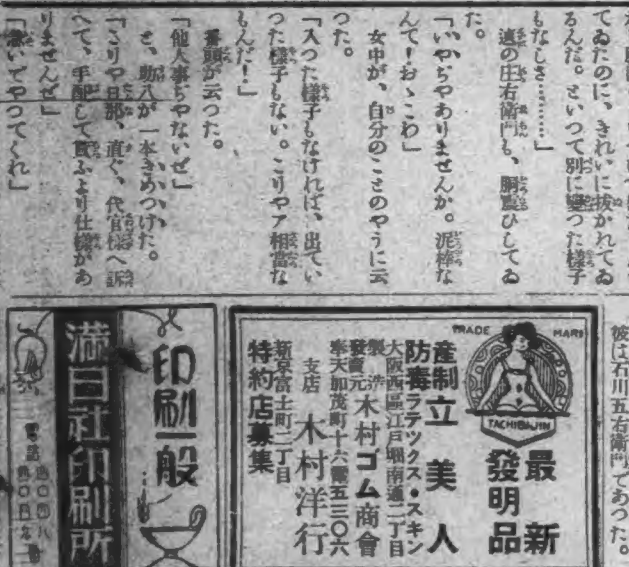 てゐたのに、きれいに抜かれてゐ
るんだ。といつて別に變つた様子
もなしさ…………」
遉の庄右衞門も、胴震ひしてゐ
た。
「いやぢやありませんか。泥棒な
んて！おゝこわ」
女中が、自分のことのやうに云
つた。
「入つた様子もなければ、出てい
つた様子もない。こりやア相當な
もんだ！」
番頭が云つた。
「他人事ぢやないぜ」
と、助八が一本きめつけた。
「さりや旦那、直ぐ、代官様へ訴
へて、手配して貰ふより仕様があ
りませんぜ」
「急いでやつてくれ」
彼は石川五右衞門であつた。
TRADE MARK
TACHIBIJIN
最新
發明品
産制 立美人
防毒 ラテツクス・スキン
大阪西區江戸堀南通二丁目
製造發賣元 木村ゴム商會
奉天加茂町十六電五三〇六
支店 木村洋行
新京富士町二丁目
特約店募集
印刷一般
滿日社印刷所
電話